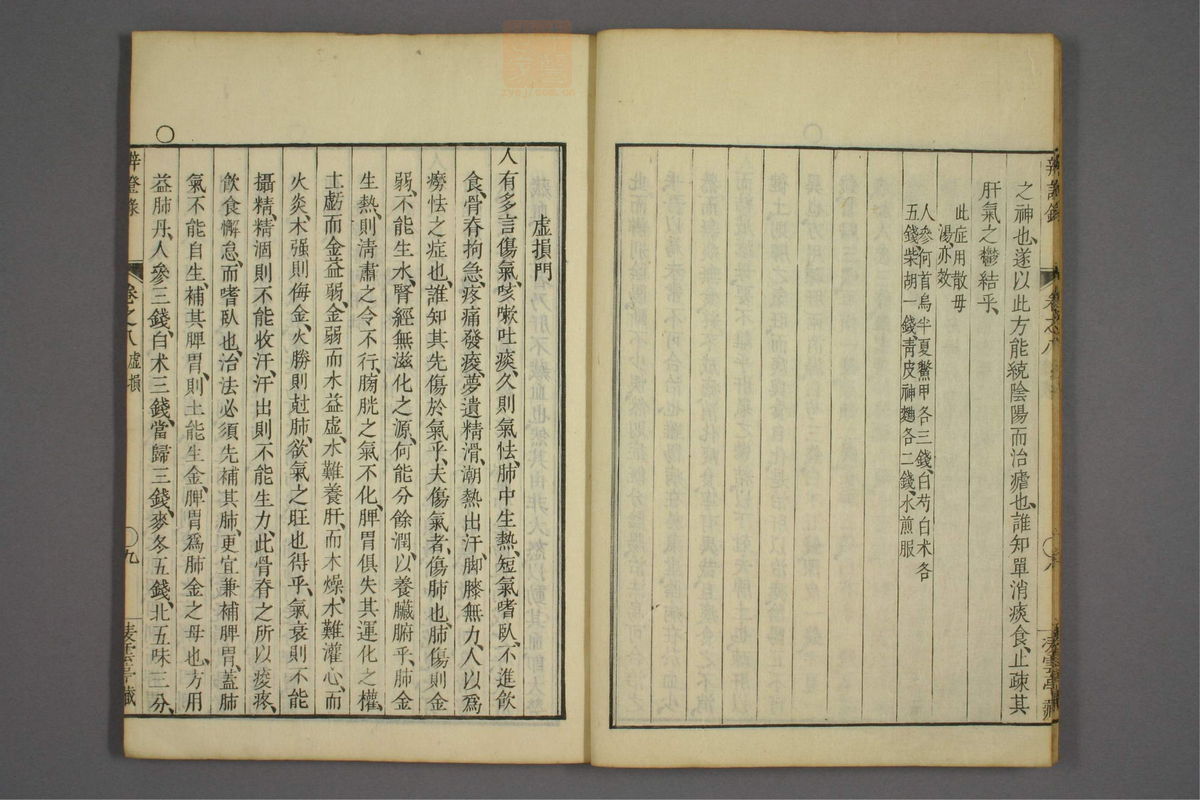 之神也、遂以此方能統陰陽而治瘧也、誰知單消痰食、止疎其
肝氣之鬱結乎、
此症用散毋
湯亦效
人參何首烏半夏鱉甲各三錢、白芍白术各
五錢、柴胡一錢、青皮神麯各二錢、水煎服
虛損門
人有多言傷氣、咳嗽吐痰、久則氣怯、肺中生熱、短氣嗜臥、不進飲
食、骨脊拘急、疼痛發痠、夢遺精滑、潮熱出汗、脚膝無力、人以爲
癆怯之症也、誰知其先傷於氣乎、夫傷氣者、傷肺也、肺傷則金
弱、不能生水、腎經無滋化之源、何能分餘潤、以養臟腑乎、肺金
生熱、則清肅之令不行、膀胱之氣不化、脾胃俱失其運化之權、
土虧而金益弱、金弱而水益虛、水難養肝、而木燥、水難灌心、而
火炎、木强則侮金、火勝則尅肺、欲氣之旺也得乎、氣衰則不能
攝精、精涸則不能收汗、汗出則不能生力、此骨脊之所以痠疼、
飲食懈怠、而嗜臥也、治法必須先補其肺、更宜兼補脾胃、蓋肺
氣不能自生、補其脾胃、則土能生金、脾胃爲肺金之母也、方用
益肺丹、人參三錢、白术三錢、當歸三錢、麥冬五錢、北五味三分、
辨證錄
卷之八 虛損
九